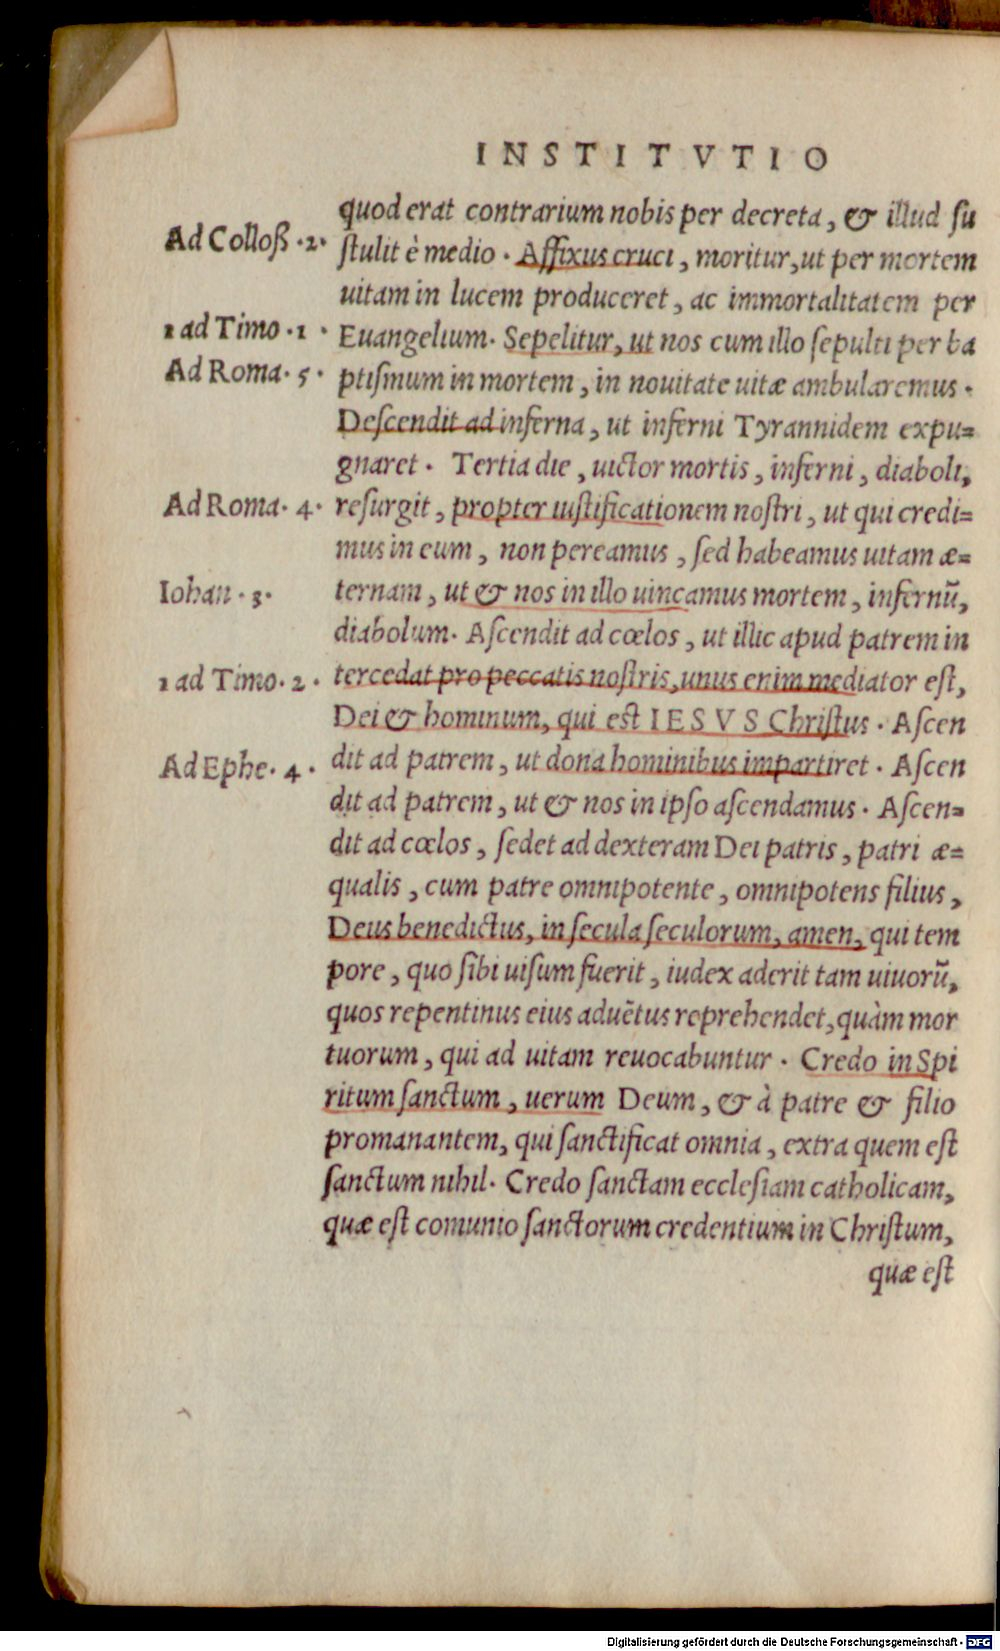 INSTITVTIO
quod erat contrarium nobis per decreta, & illud ſu
Ad Colloß .2.
ſtulit è medio . Affixus cruci, moritur, ut per mortem
uitam in lucem produceret, ac immortalitatem per
1 ad Timo .1 .
Euangelium. Sepelitur, ut nos cum illo ſepulti per ba
Ad Roma. 5 .
ptiſmum in mortem, in nouitate uitæ ambularemus .
Deſcendit ad inferna, ut inferni Tyrannidem expu=
gnaret . Tertia die, uictor mortis, inferni, diaboli,
Ad Roma. 4.
reſurgit, propter iuſtificationem noſtri, ut qui credi=
mus in eum, non pereamus, ſed habeamus uitam æ=
Iohan . 3.
ternam, ut & nos in illo uincamus mortem, infernũ,
diabolum. Aſcendit ad cœlos, ut illic apud patrem in
1 ad Timo. 2 .
tercedat pro peccatis noſtris, unus enim mediator eſt,
Dei & hominum, qui est IESVS Chriſtus . Aſcen
Ad Ephe. 4 .
dit ad patrem, ut dona hominibus impartiret . Aſcen
dit ad patrem, ut & nos in ipſo aſcendamus . Aſcen=
dit ad cœlos, ſedet ad dexteram Dei patris, patri æ=
qualis, cum patre omnipotente, omnipotens filius,
Deus benedictus, in ſecula ſeculorum, amen, qui tem
pore, quo ſibi uiſum fuerit, iudex aderit tam uiuorũ,
quos repentinus eius aduẽtus reprehendet, quàm mor
tuorum, qui ad uitam reuocabuntur . Credo in Spi
ritum ſanctum, uerum Deum, & à patre & filio
promanantem, qui ſanctificat omnia, extra quem eſt
ſanctum nihil. Credo ſanctam eccleſiam catholicam,
quæ eſt comunio ſanctorum credentium in Chriſtum,
quæ eſt
Digitalisierung gefördert durch die Deutsche Forschungsgemeinschaft - DFG